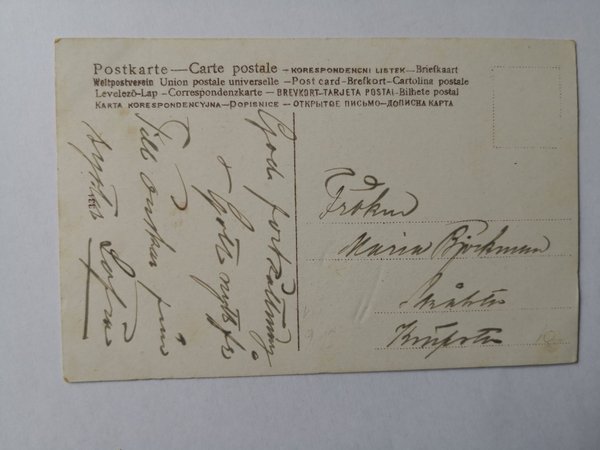 Postkarte — Carte postale — KORESPONDENCNI LISTEK — Briefkaart
Weltpostverein Union postale universelle — Post card — Brefkort — Cartolina postale
Levelező-Lap — Correspondenzkarte — BREVKORT — TARJETA POSTAL — Bilhete postal
KARTA KORESPONDENCYJNA — DOPISNICE — ОТКРЫТОЕ ПИСЬМО — ДОПИСНА КАРТА
God fortsättning
& Gott nytt år
Till önskar från
syster Sofia
Fröken
Maria Björkman